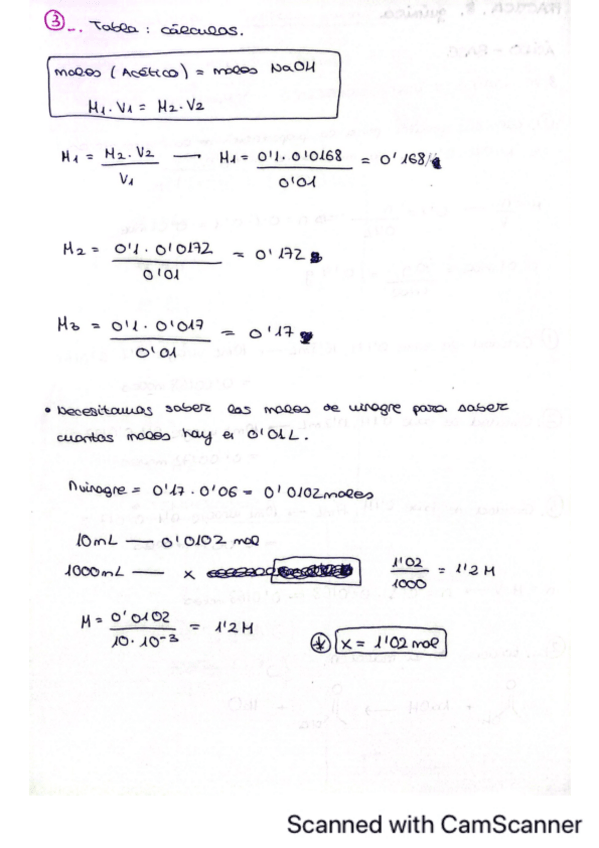 ③ _.. Tabla : cálculos.
moles (Acético) = moles NaOH
M₁ · V₁ = M₂ · V₂
M₁ = M₂ · V₂ / V₁ → M₁ = 0'1 · 0'0168 / 0'01 = 0'168
M₂ = 0'1 · 0'0172 / 0'01 = 0'172
M₃ = 0'1 · 0'017 / 0'01 = 0'17
• Necesitamos saber los moles de vinagre para saber
cuantos moles hay en 0'01L.
nvinagre = 0'17 · 0'06 = 0'0102 moles
10mL — 0'0102 mol
1000mL — x 1'02 / 1000 = 1'2 M
M = 0'0102 / 10 · 10⁻³ = 1'2 M
* x = 1'02 mol
Scanned with CamScanner